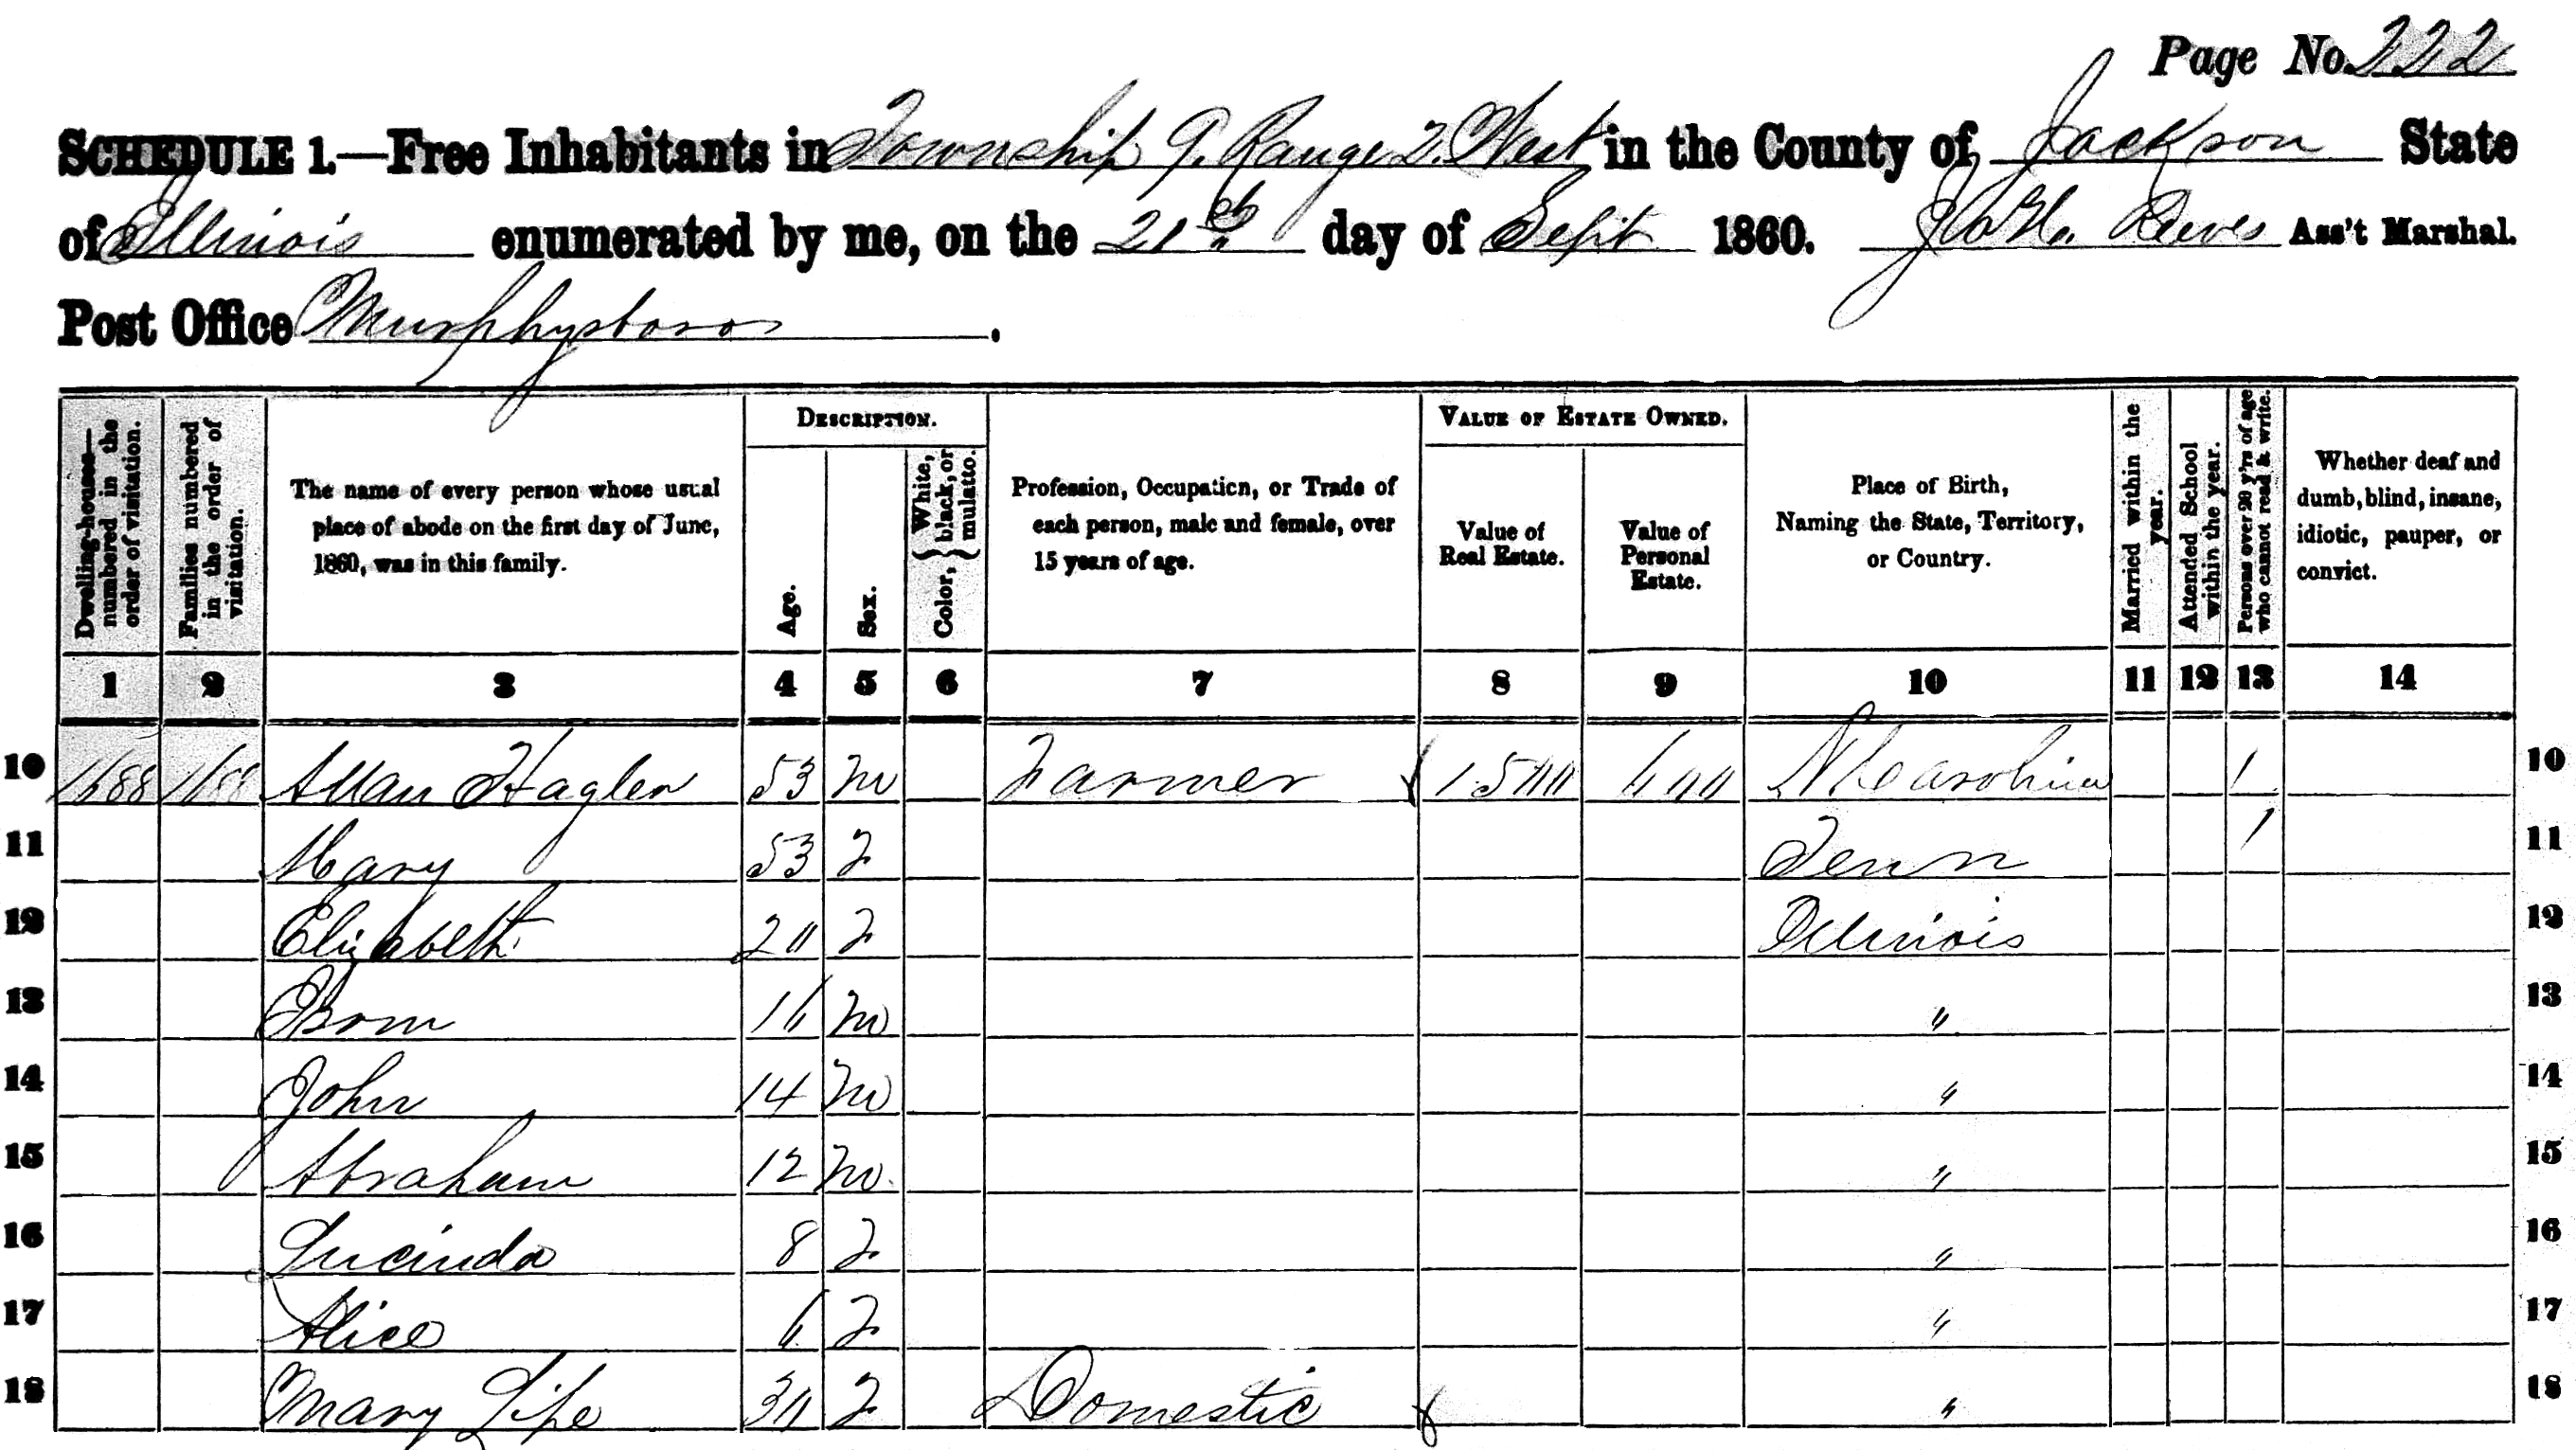 Page No. 222
SCHEDULE 1.—Free Inhabitants in Township 9. Range 2. West in the County of Jackson State
of Illinois enumerated by me, on the 21st day of Sept 1860. Reeves Ass't Marshal.
Post Office Murphysboro.
Dwelling-houses—numbered in the order of visitation.
Families numbered in the order of visitation.
The name of every person whose usual
place of abode on the first day of June,
1860, was in this family.
DESCRIPTION.
Age.
Sex.
Color, { White, black, or mulatto.
Profession, Occupation, or Trade of
each person, male and female, over
15 years of age.
VALUE OF ESTATE OWNED.
Value of
Real Estate.
Value of
Personal
Estate.
Place of Birth,
Naming the State, Territory,
or Country.
Married within the year.
Attended School within the year.
Persons over 20 y'rs of age who cannot read & write.
Whether deaf and
dumb, blind, insane,
idiotic, pauper, or
convict.
1 2 3 4 5 6 7 8 9 10 11 12 13 14
10 1688 1688 Allan Hagler 53 m Farmer 1500 600 N Carolina 1 10
11 Mary 53 F Tenn 1 11
12 Elizabeth 20 F Illinois 12
13 Isom 16 m " 13
14 John 14 m " 14
15 Abraham 12 m " 15
16 Lucinda 8 F " 16
17 Alice 6 F " 17
18 Mary Lipe 30 F Domestic " 18